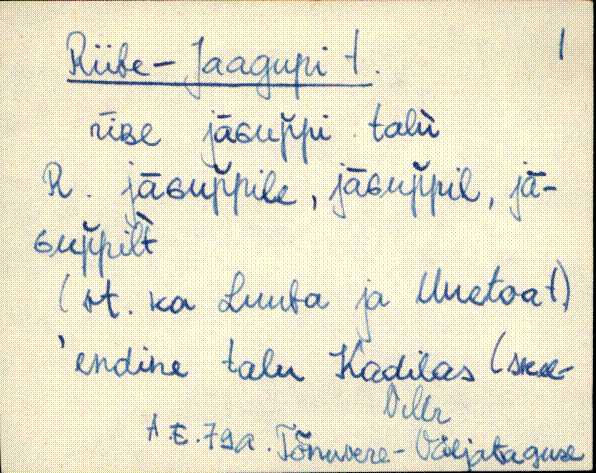 Riibe-Jaagupi t. 1
rīʙe jāɢup̆pi talù
R. jāɢup̆pile, jāɢup̆pil, jā-
ɢup̆pilt̀
(vt. ka Luuba ja Uuetoa t)
'endine talu Kadilas (
VMr
A.E. 79a. Tõnuvere-Väljataguse